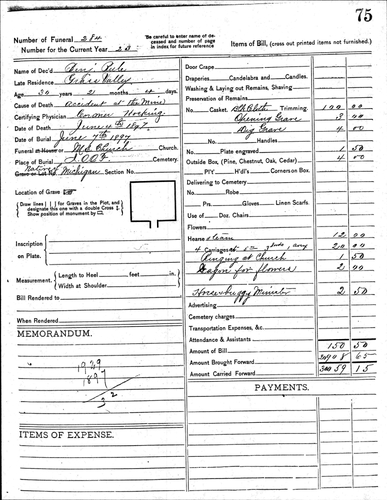 75
Number of Funeral 284
Number for the Current Year 20
Be careful to enter name of deceased and number of page in index for future reference
Name of Dec'd
Late Residence Grass Valley
Age 30 years 2 months days
Cause of Death accident at the Mine
Certifying Physician Coroner Hocking
Date of Death June 4th 1897
Date of Burial June 7th 1897
Funeral at House M.E. Church Church.
Place of Burial I.O.O.F. Cemetery.
Native of Michigan
Location of Grave
Draw lines for Graves in the Plot, and designate this one with a double Cross
Show position of monument by
Inscription
on Plate.
Measurement. Length to Heel feet in.
Width at Shoulder
Bill Rendered to
When Rendered
MEMORANDUM.
1929
1897
32
ITEMS OF EXPENSE.
Items of Bill, (cross out printed items not furnished.)
Door Crape
Draperies, Candelabra and Candles.
Washing & Laying out Remains, Shaving
Preservation of Remains
No. Casket, Blk Cloth Trimming
Opening Grave 3 00
Dig Grave 4 00
No. Handles
Plate engraved 1 50
Outside Box (Pine, Chestnut, Oak, Cedar) 4 00
P/V H'dl's Corners on Box.
Delivering to Cemetery
No. Robe
Prs. Gloves Linen Scarfs.
Use of Doz. Chairs
Flowers
Hearse team 12 00
4 Carriages at 20 00
Singing at Church 1 50
Wagon for flowers 2 00
Horse & buggy Minister 2 50
Advertising
Cemetery charges
Transportation Expenses, &c.
Attendance & Assistants
Amount of Bill 150 50
Amount Brought Forward
Amount Carried Forward
PAYMENTS.